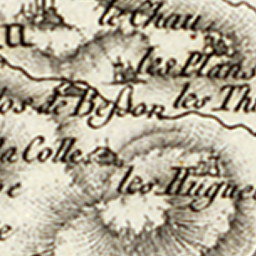 le Chau
les Plans
los de Besson
les Th
la Colle
les Hugue